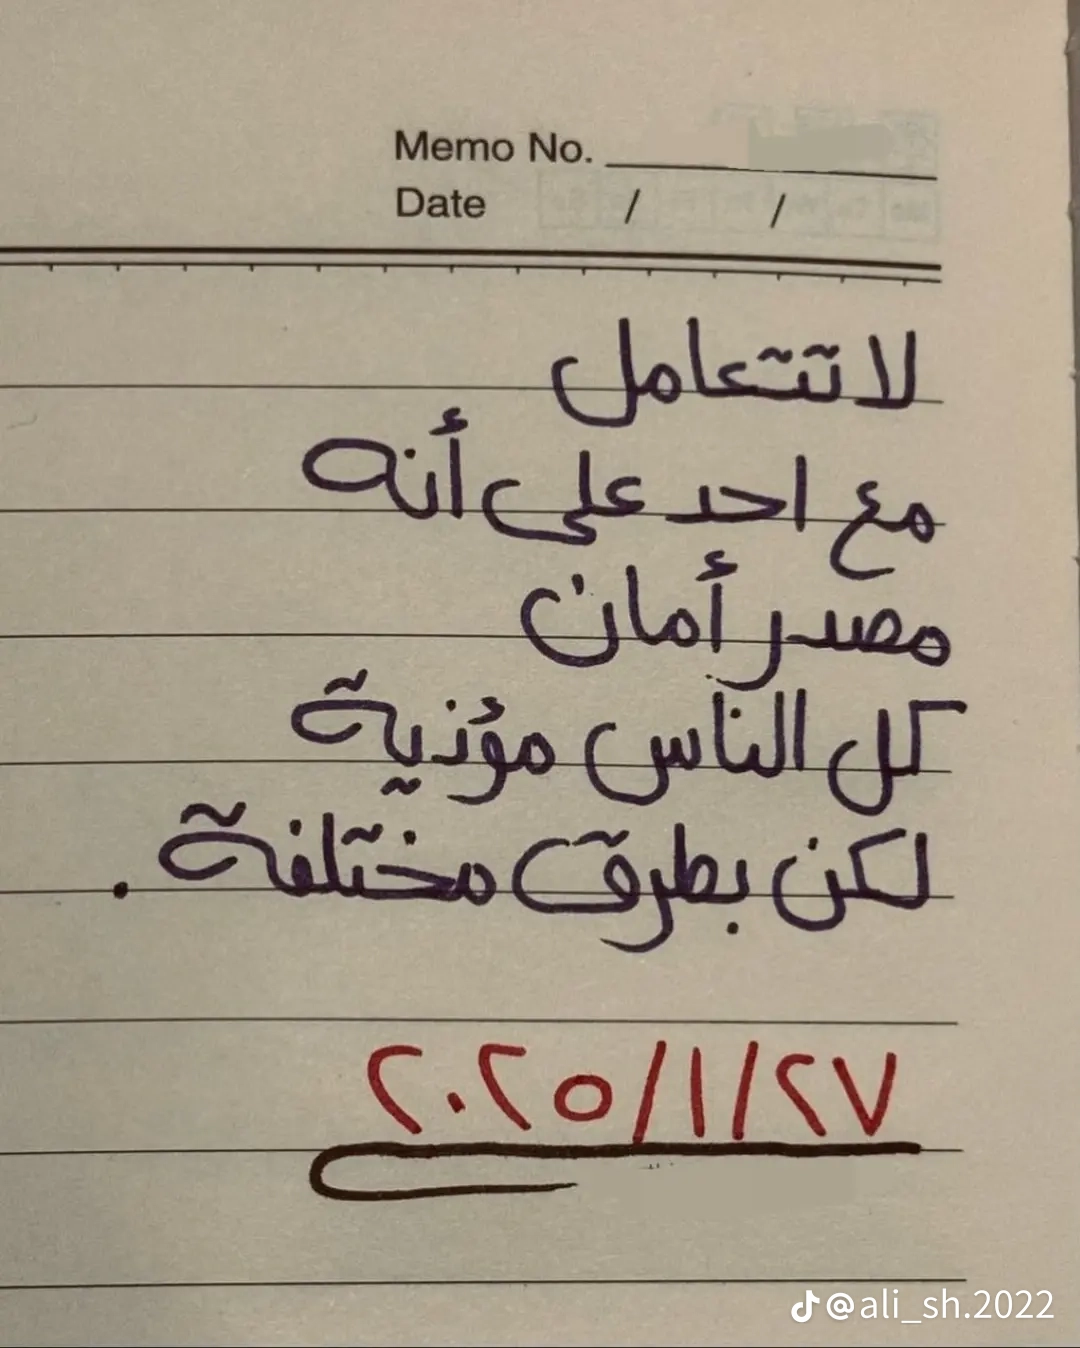 Memo No.
Date / /
لا تتعامل
مع احد على أنه
مصدر أمان
كل الناس مؤذية
لكن بطرق مختلفة .
٢٠٢٥/١/٢٧
@ali_sh.2022